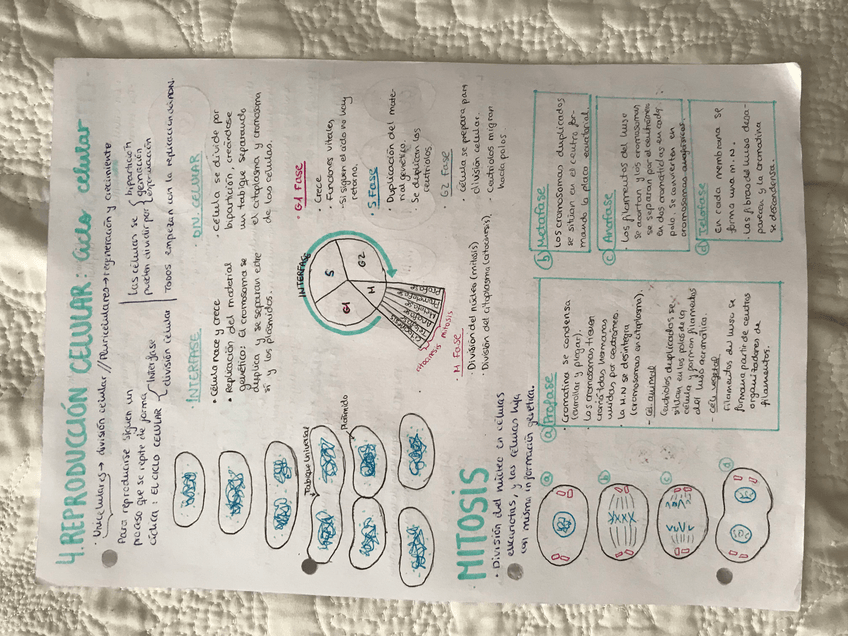 4. REPRODUCCIÓN CELULAR: Ciclo celular
· Unicelulares → división celular // Pluricelulares → regeneración y crecimiento
Para reproducirse siguen un
proceso que se repite de forma
cíclica: EL CICLO CELULAR
Interfase
división celular
Las células se
pueden dividir por
bipartición
gemación
esporulación
TODOS empiezan con la replicación del ADN.
INTERFASE
· Célula nace y crece
· Replicación del material
genético: El cromosoma se
duplica y se separan entre
sí y los plásmidos.
DIV. CELULAR
· Célula se divide por
bipartición, creándose
un tabique separando
el citoplasma y cromosoma
de las células.
Tabique Universal
Plásmido
INTERFASE
G1
S
G2
M
Profase
Metafase
Anafase
Telofase
citocinesis
mitosis
· G1 Fase
· Crece
· Funciones vitales
· Si siguen el ciclo no hay
retorno.
· S Fase
· Duplicación del mate-
rial genético.
Se duplican los
centriolos
G2 Fase
· Célula se prepara para
división celular.
· Centriolos migran
hacia polos.
· M Fase
División del núcleo (mitosis)
División del citoplasma (citocinesis)
MITOSIS
· División del núcleo en células
eucariotas, y las células hijas
con misma información genética.
a
b
c
d
a) Profase
· Cromatina se condensa
(enrollar y plegar).
Los cromosomas tienen
cromátidas hermanas
unidas por centrómero.
· la M.N se desintegra
(cromosomas en citoplasma).
- cel. animal
Centriolos duplicados se
sitúan en los polos de la
célula y forman filamentos
del huso acromático.
- célu vegetal
Filamentos del huso se
forman a partir de centros
organizadores de
filamentos.
b) Metafase
Los cromosomas duplicados
se sitúan en el centro for-
mando la placa ecuatorial.
c) Anafase
· Los filamentos del huso
se acortan y los cromosomas
se separan por el centrómero
en dos cromátidas, en cada
polo. Se convierten en
cromosomas
d) Telofase
En cada membrana se
forma una m. N.
· Las fibras del huso desa-
parecen y la cromatina
se descondensa.